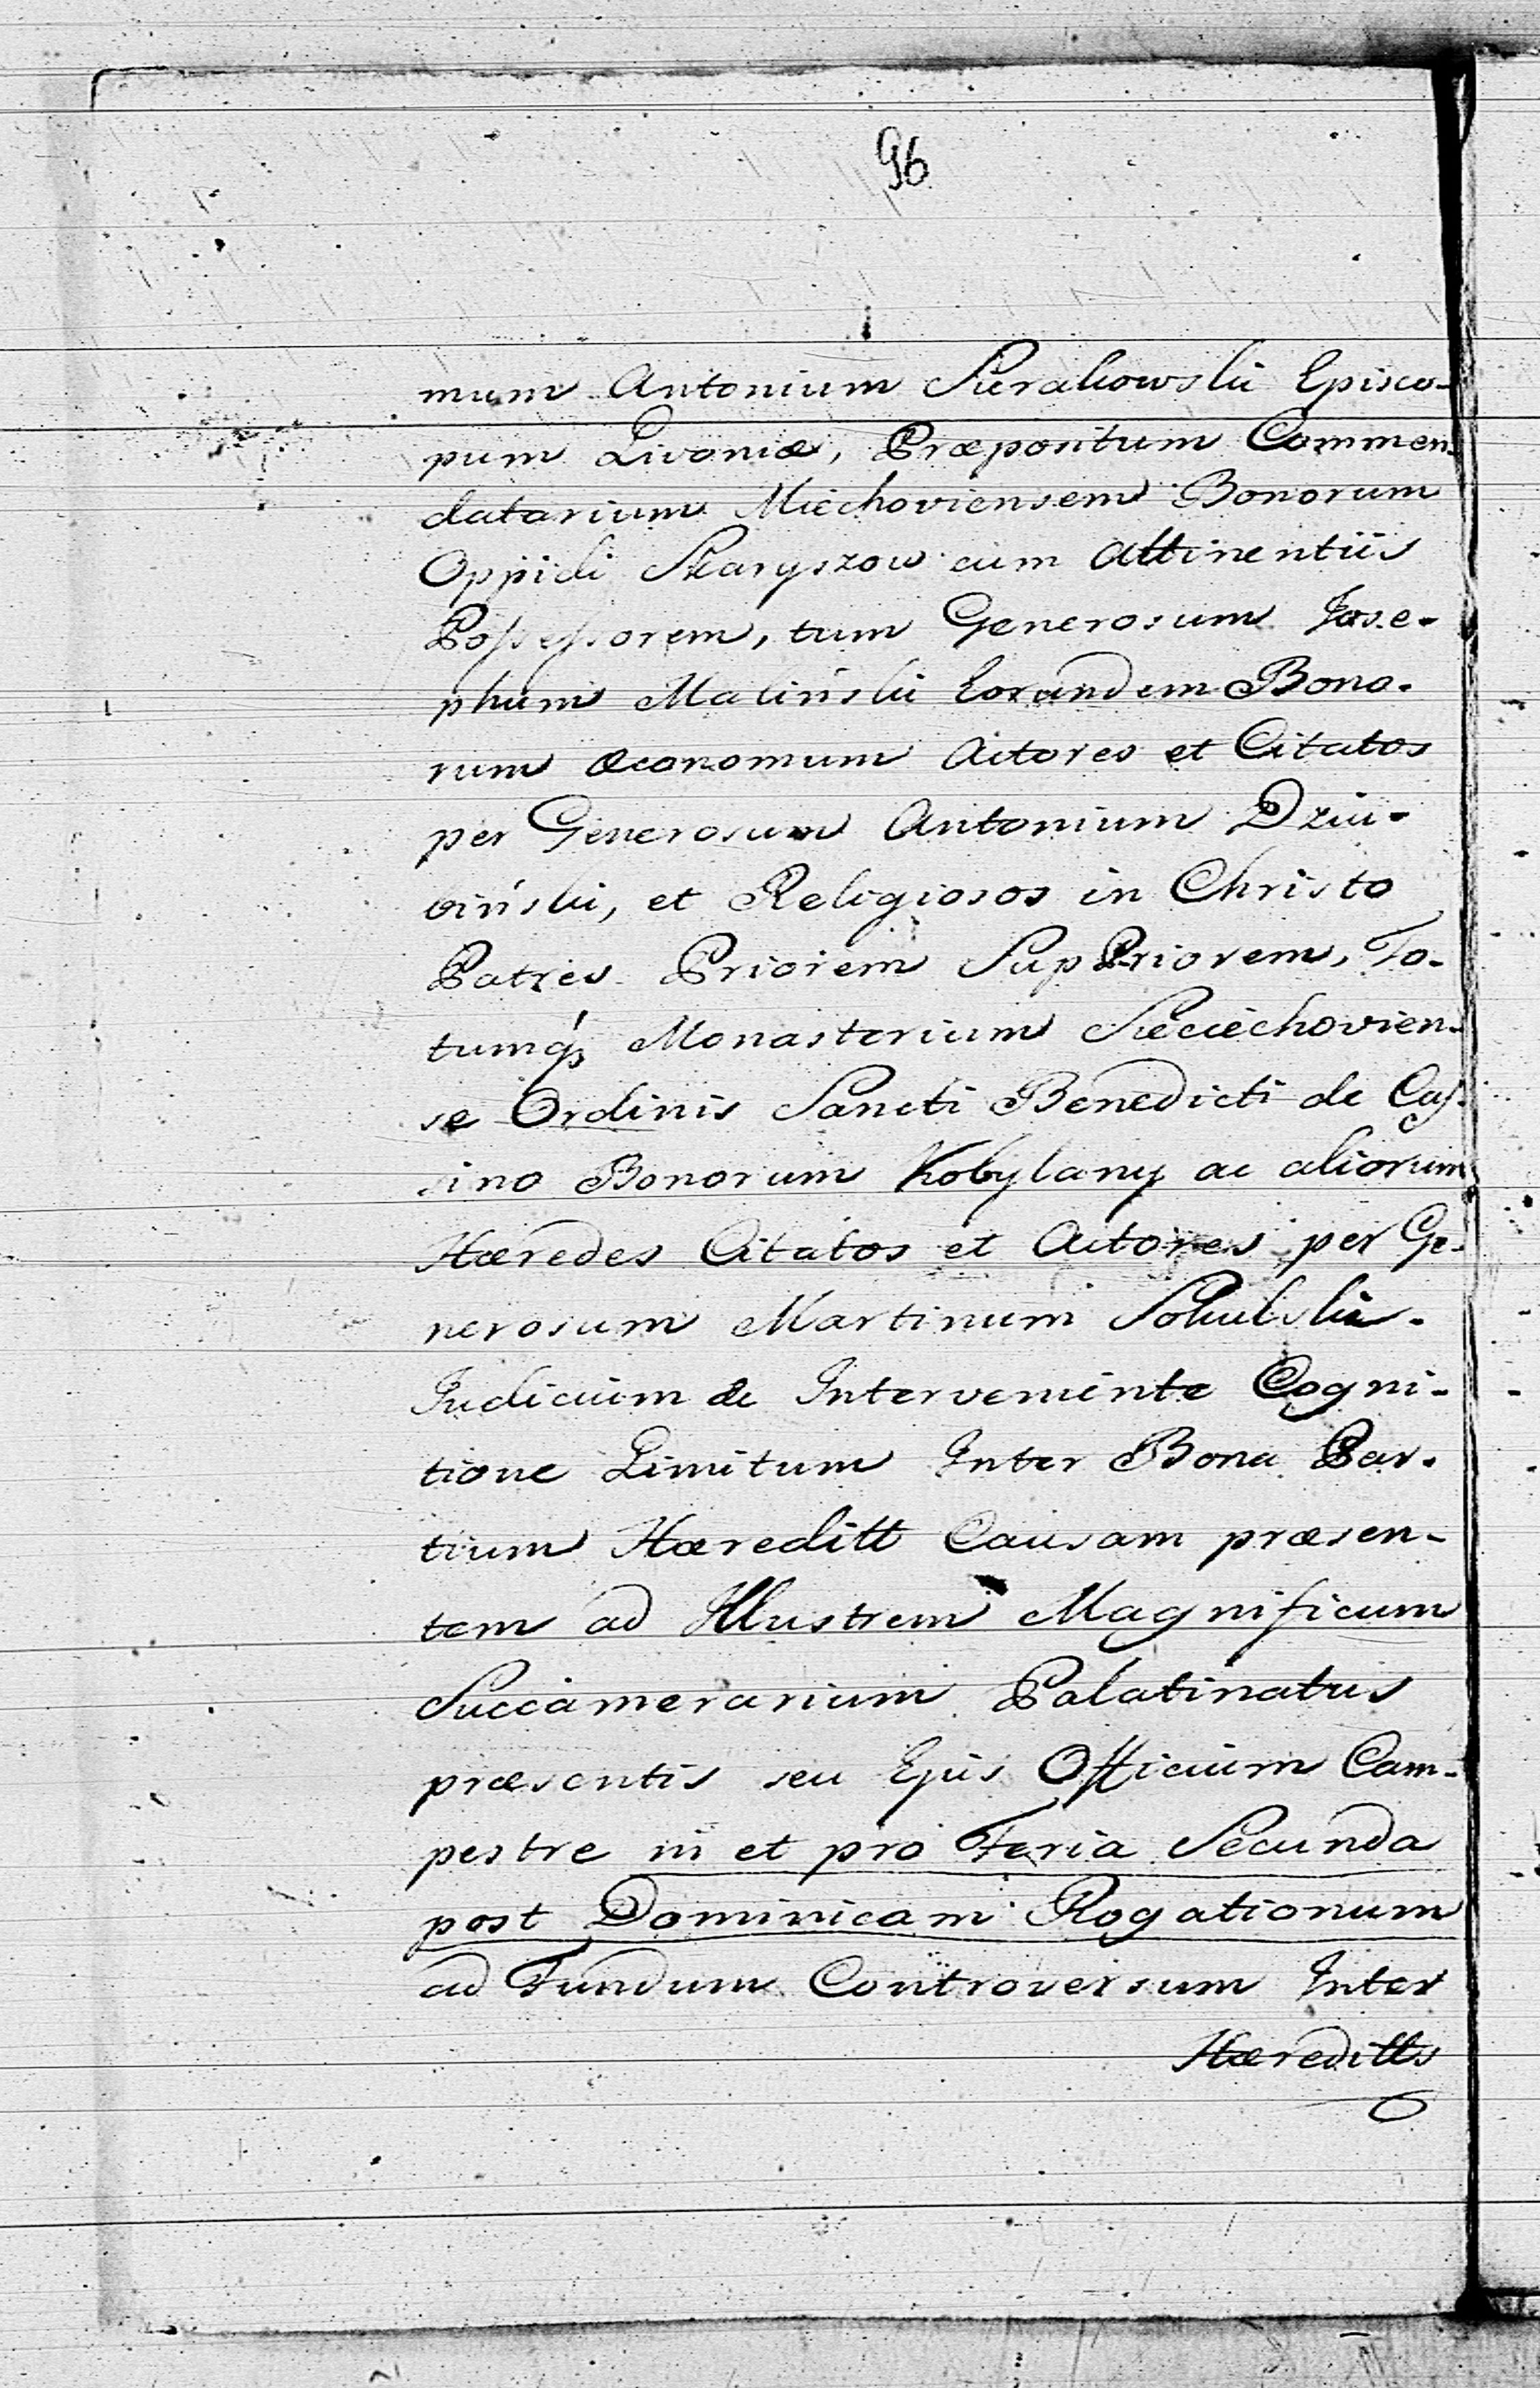 96
mum Antonium Sierakowski Episco-
pum Livoniæ, Præpositum Commen-
datarium Miechoviensem Bonorum
Oppidi Skaryszow cum Attinentiis
Possessorem, tum Generosum Jose-
phum Maciński Eorundem Bono-
rum Œconomum Actores et Citatos
per Generosum Antonium Dziu-
biński, et Religiosos in Christo
Patres Priorem SupPriorem, To-
tumq́ Monasterium Sieciechovien-
se Ordinis Sancti Benedicti de Cas-
sino Bonorum Kobylany ac aliorum
Hæredes Citatos et Actores per Ge-
nerosum Martinum
Judicium de Interveniente Cogni-
tione Limitum Inter Bona Par-
tium Hæreditt Causam præsen-
tem ad Illustrem Magnificum
Succamerarium Palatinatus
præsentis seu Ejus Officium Cam-
pestre in et pro Feria Secunda
post Dominicam Rogationum
ad Fundum Controversum Inter
Hæreditts